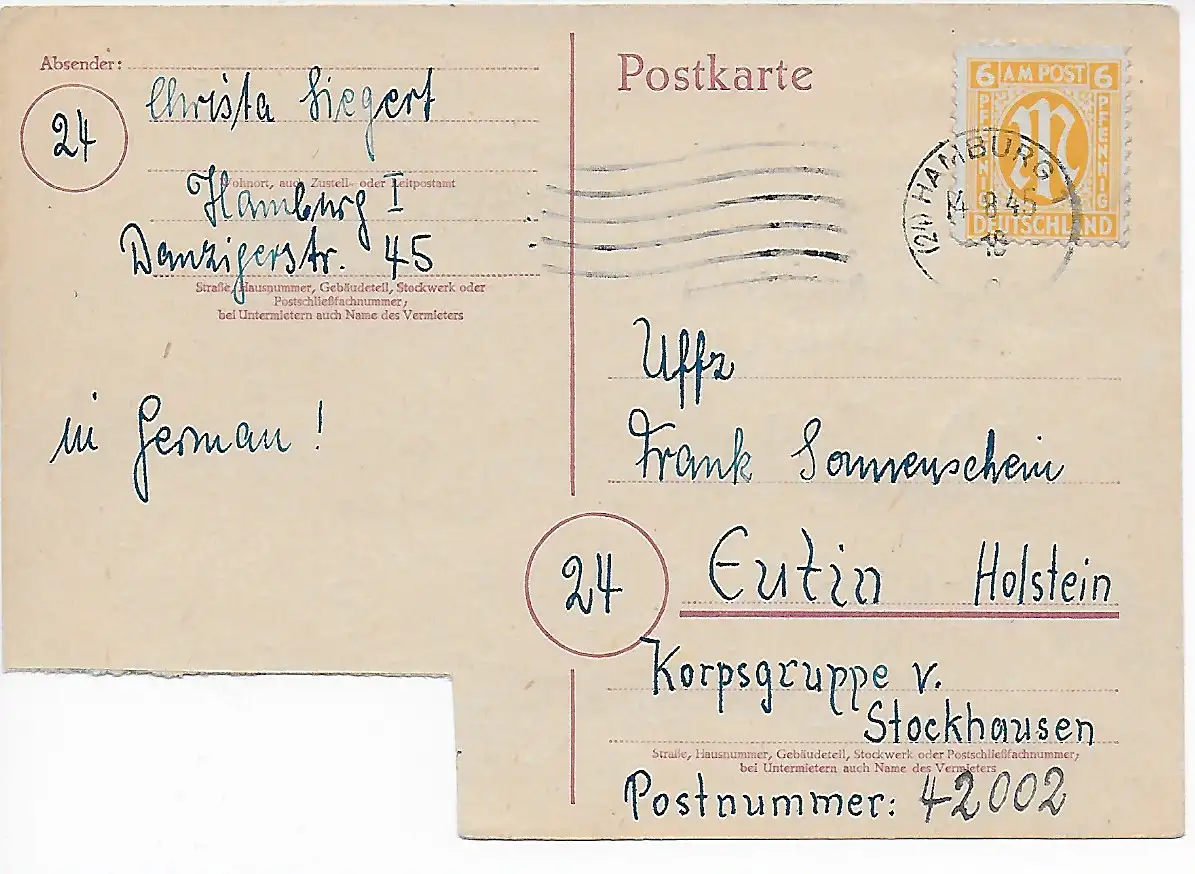 Absender:
Christa Siegert
24
Wohnort, auch Zustell- oder Leitpostamt
Hamburg I
Danzigerstr. 45
Straße, Hausnummer, Gebäudeteil, Stockwerk oder
Postschließfachnummer;
bei Untermietern auch Name des Vermieters
in German!
Postkarte
6 AM POST 6
PFENNIG
PFENNIG
M
DEUTSCHLAND
(24) HAMBURG
14.9.45
-18
Uffz
Frank Sonnenschein
24
Eutin Holstein
Korpsgruppe v.
Stockhausen
Straße, Hausnummer, Gebäudeteil, Stockwerk oder Postschließfachnummer;
bei Untermietern auch Name des Vermieters
Postnummer: 42002